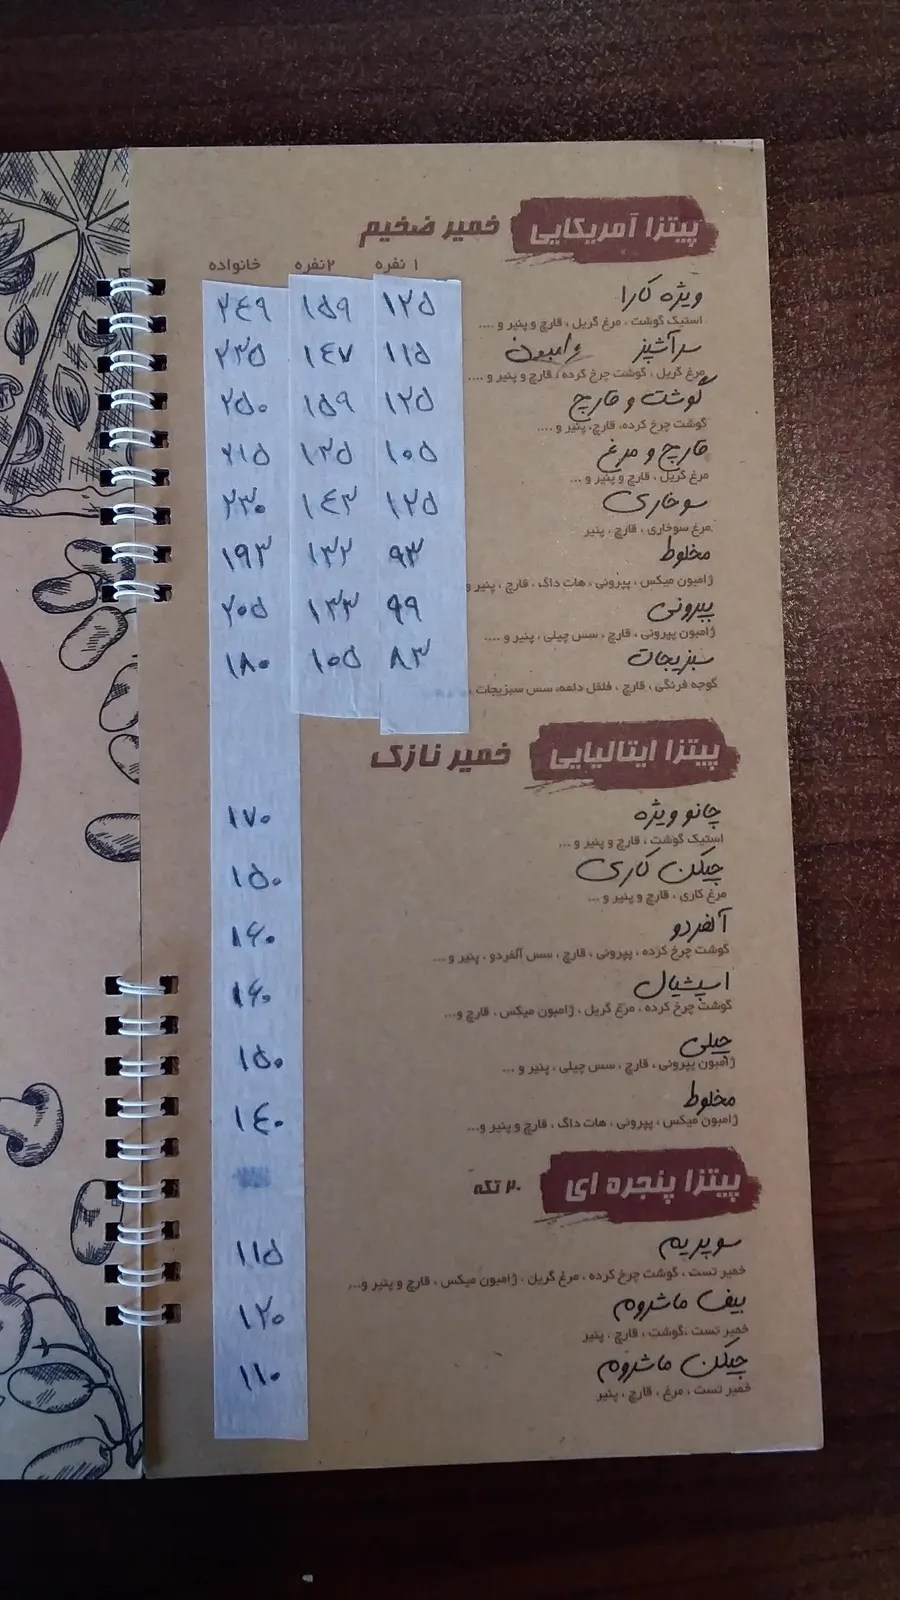 پیتزا آمریکایی خمیر ضخیم
۱ نفره ۲نفره خانواده
ویژه کارا ۱۲۵ ۱۵۹ ۲۴۹
استیک گوشت ، مرغ گریل ، قارچ و پنیر و ....
سرآشپز وامبون ۱۱۵ ۱۴۷ ۲۳۵
مرغ گریل ، گوشت چرخ کرده ، قارچ و پنیر و ....
گوشت و قارچ ۱۲۵ ۱۵۹ ۲۵۰
گوشت چرخ کرده، قارچ، پنیر و ....
قارچ و مرغ ۱۰۵ ۱۳۵ ۲۱۵
مرغ گریل ، قارچ و پنیر و ...
سوخاری ۱۲۵ ۱۴۳ ۲۳۰
مرغ سوخاری ، قارچ ، پنیر
مخلوط ۹۳ ۱۳۲ ۱۹۳
ژامبون میکس ، پپرونی ، هات داگ ، قارچ ، پنیر و
پپرونی ۹۹ ۱۳۳ ۲۰۵
ژامبون پپرونی ، قارچ ، سس چیلی ، پنیر و ....
سبزیجات ۸۳ ۱۰۵ ۱۸۰
گوجه فرنگی ، قارچ ، فلفل دلمه، سس سبزیجات ،
پیتزا ایتالیایی خمیر نازک
چانو ویژه ۱۷۰
استیک گوشت ، قارچ و پنیر و ...
چیکن کاری ۱۵۰
مرغ کاری ، قارچ و پنیر و ...
آلفردو ۱۶۰
گوشت چرخ کرده ، پپرونی ، قارچ ، سس آلفردو ، پنیر و ...
اسپشیال ۱۶۰
گوشت چرخ کرده ، مرغ گریل ، ژامبون میکس ، قارچ و...
چیلی ۱۵۰
ژامبون پپرونی ، قارچ ، سس چیلی ، پنیر و ...
مخلوط ۱۴۰
ژامبون میکس ، پپرونی ، هات داگ ، قارچ و پنیر و...
پیتزا پنجره ای ۲۰ تکه
سوپریم ۱۱۵
خمیر تست ، گوشت چرخ کرده ، مرغ گریل ، ژامبون میکس ، قارچ و پنیر و...
بیف ماشروم ۱۲۰
خمیر تست ،گوشت ، قارچ ، پنیر
چیکن ماشروم ۱۱۰
خمیر تست ، مرغ ، قارچ ، پنیر